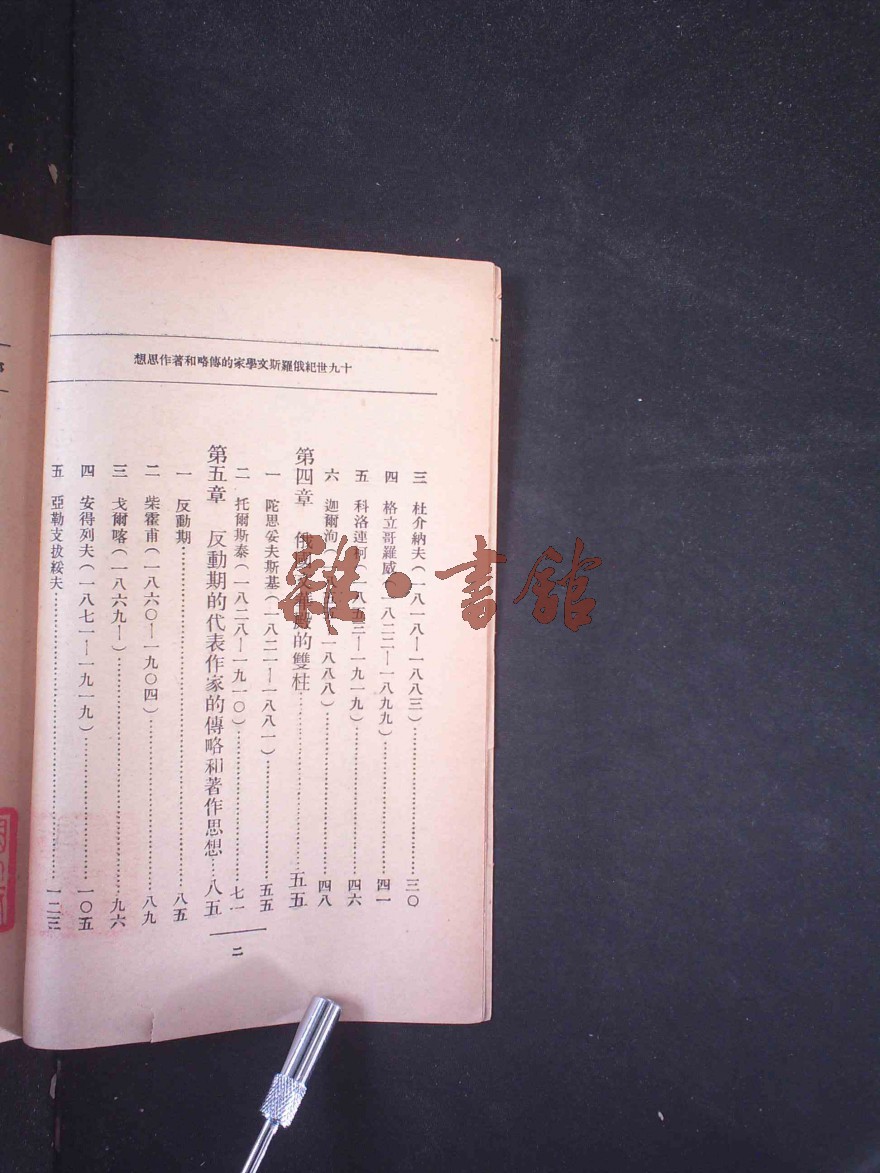 十九世紀俄羅斯文學家的傳略和著作思想
三 杜介納夫（一八一八—一八八三）……三〇
四 格立哥羅威 八二二—一八九九）……四一
五 科洛連柯（一八五三—一九一九）……四六
六 迦爾洵（一八五五 一八八八）……四八
第四章 俄國文 的雙柱……五五
一 陀思妥夫斯基（一八二一—一八八一）……五五
二 托爾斯泰（一八二八—一九一〇）……七一
第五章 反動期的代表作家的傳略和著作思想…八五
一 反動期……八五
二 柴霍甫（一八六〇—一九〇四）……八九
三 戈爾喀（一八六九—）……九六
四 安得列夫（一八七一—一九一九）……一〇五
五 亞勒支拔綏夫……一二三
二
雜·書館